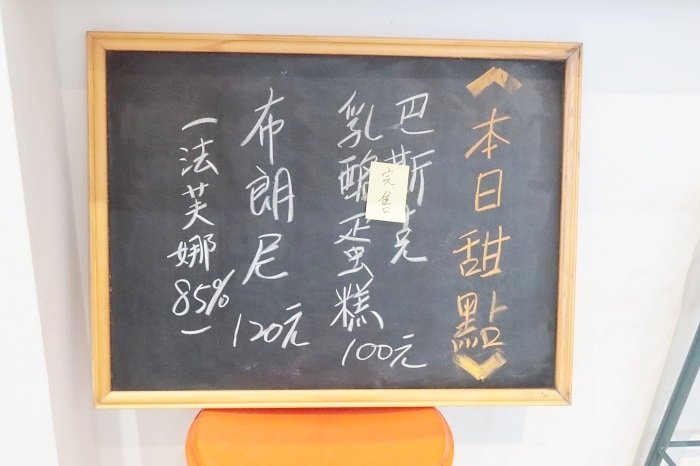 〈本日甜點〉
巴斯克
乳酪蛋糕
100元
完售
布朗尼
120元
－法芙娜85%－